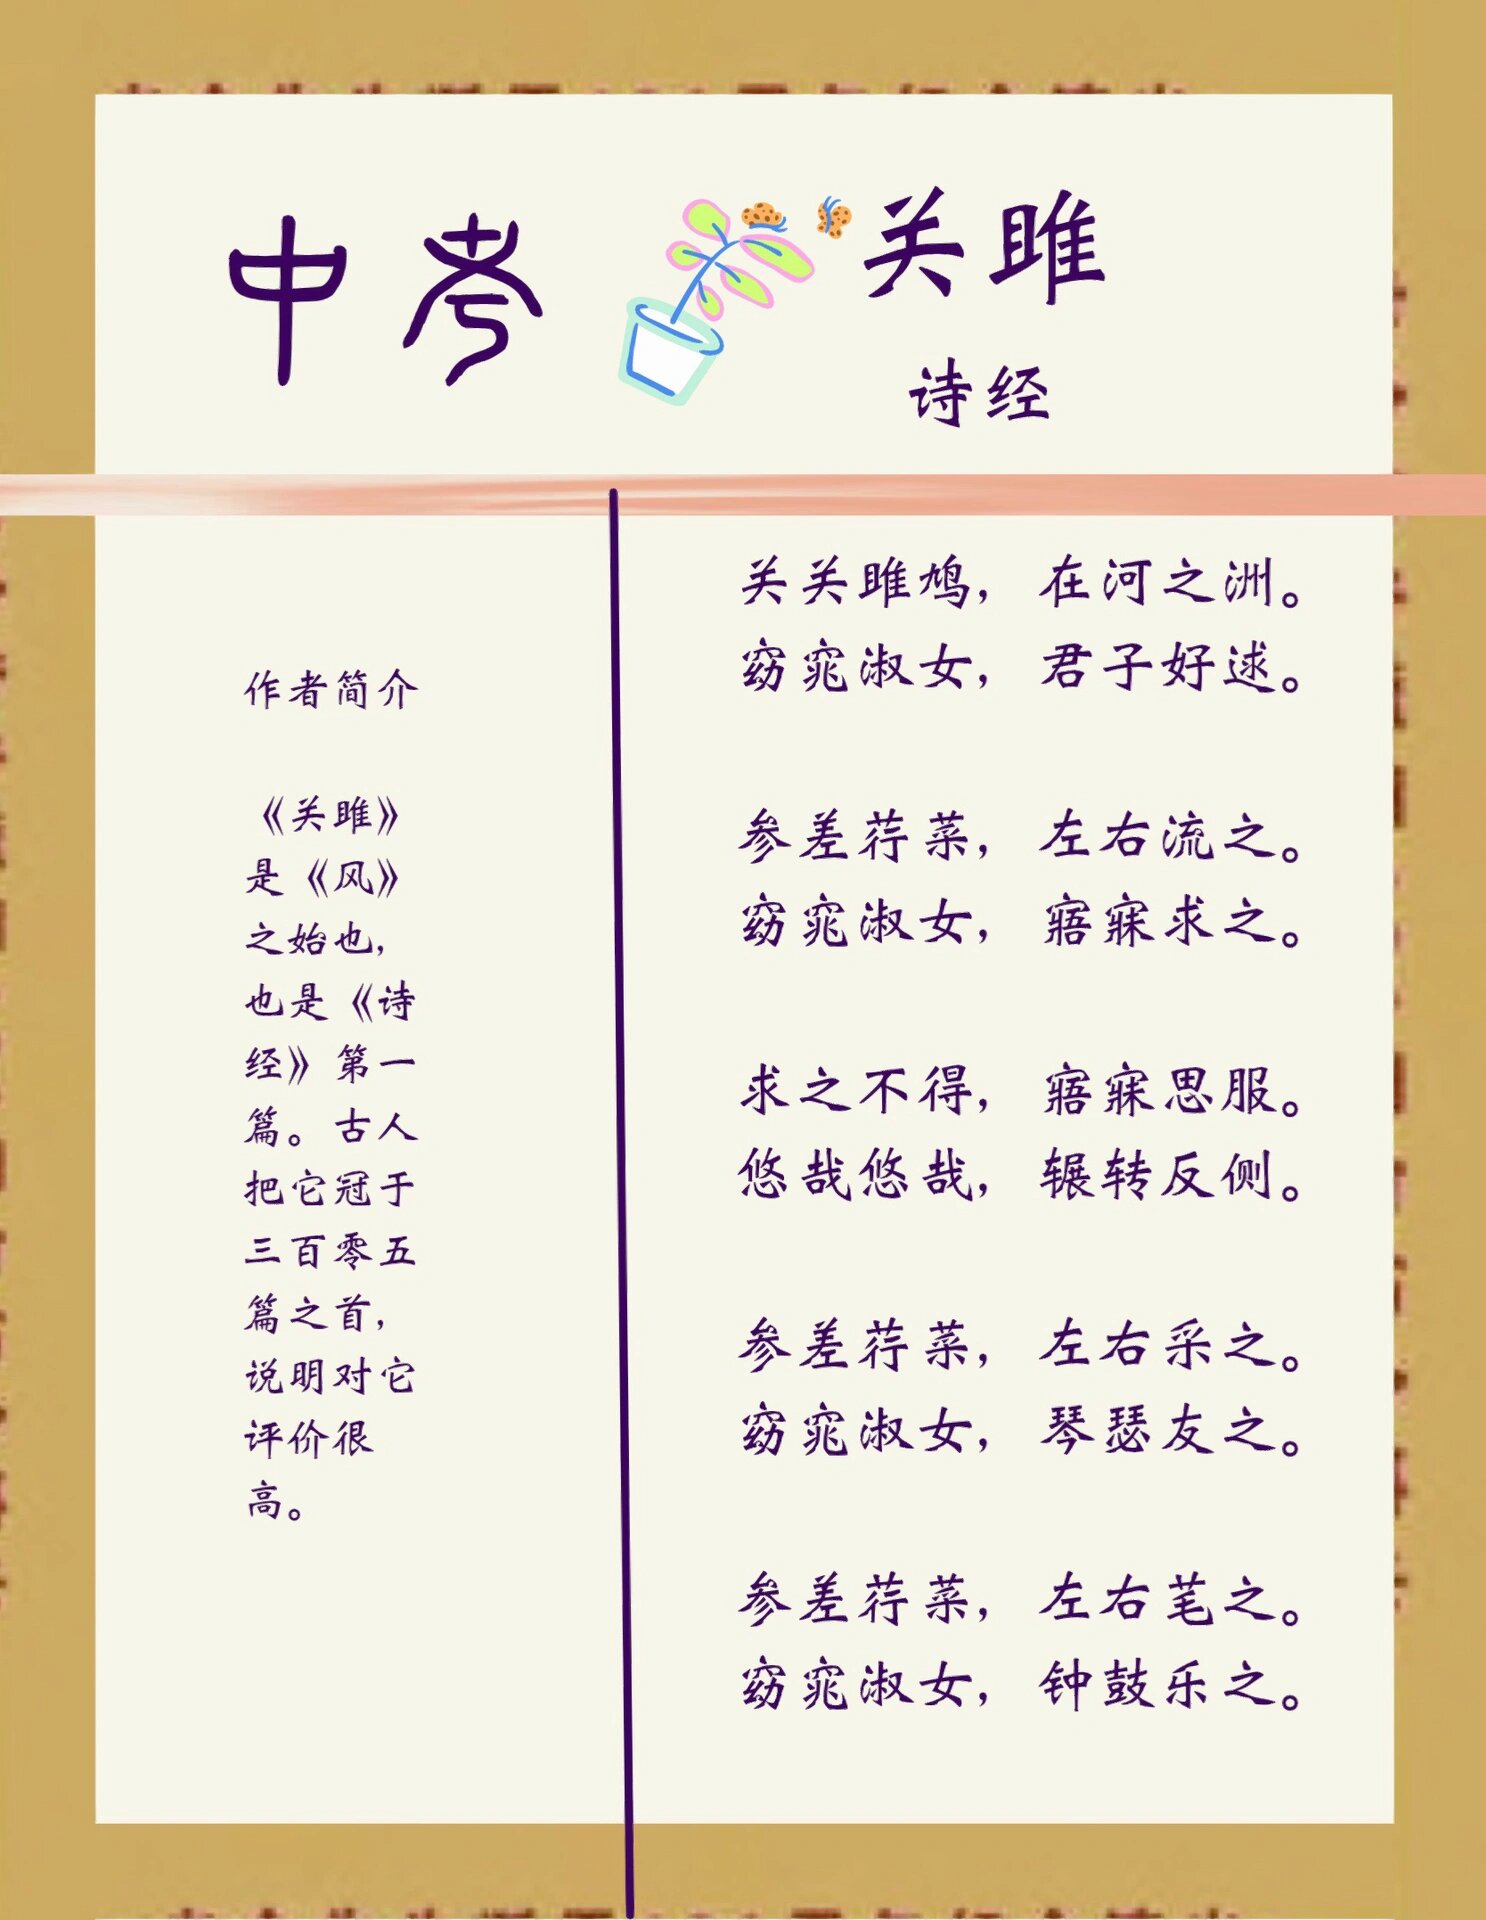 中考
关雎
诗经
作者简介
《关雎》
是《风》
之始也，
也是《诗
经》第一
篇。古人
把它冠于
三百零五
篇之首，
说明对它
评价很
高。
关关雎鸠，在河之洲。
窈窕淑女，君子好逑。
参差荇菜，左右流之。
窈窕淑女，寤寐求之。
求之不得，寤寐思服。
悠哉悠哉，辗转反侧。
参差荇菜，左右采之。
窈窕淑女，琴瑟友之。
参差荇菜，左右芼之。
窈窕淑女，钟鼓乐之。